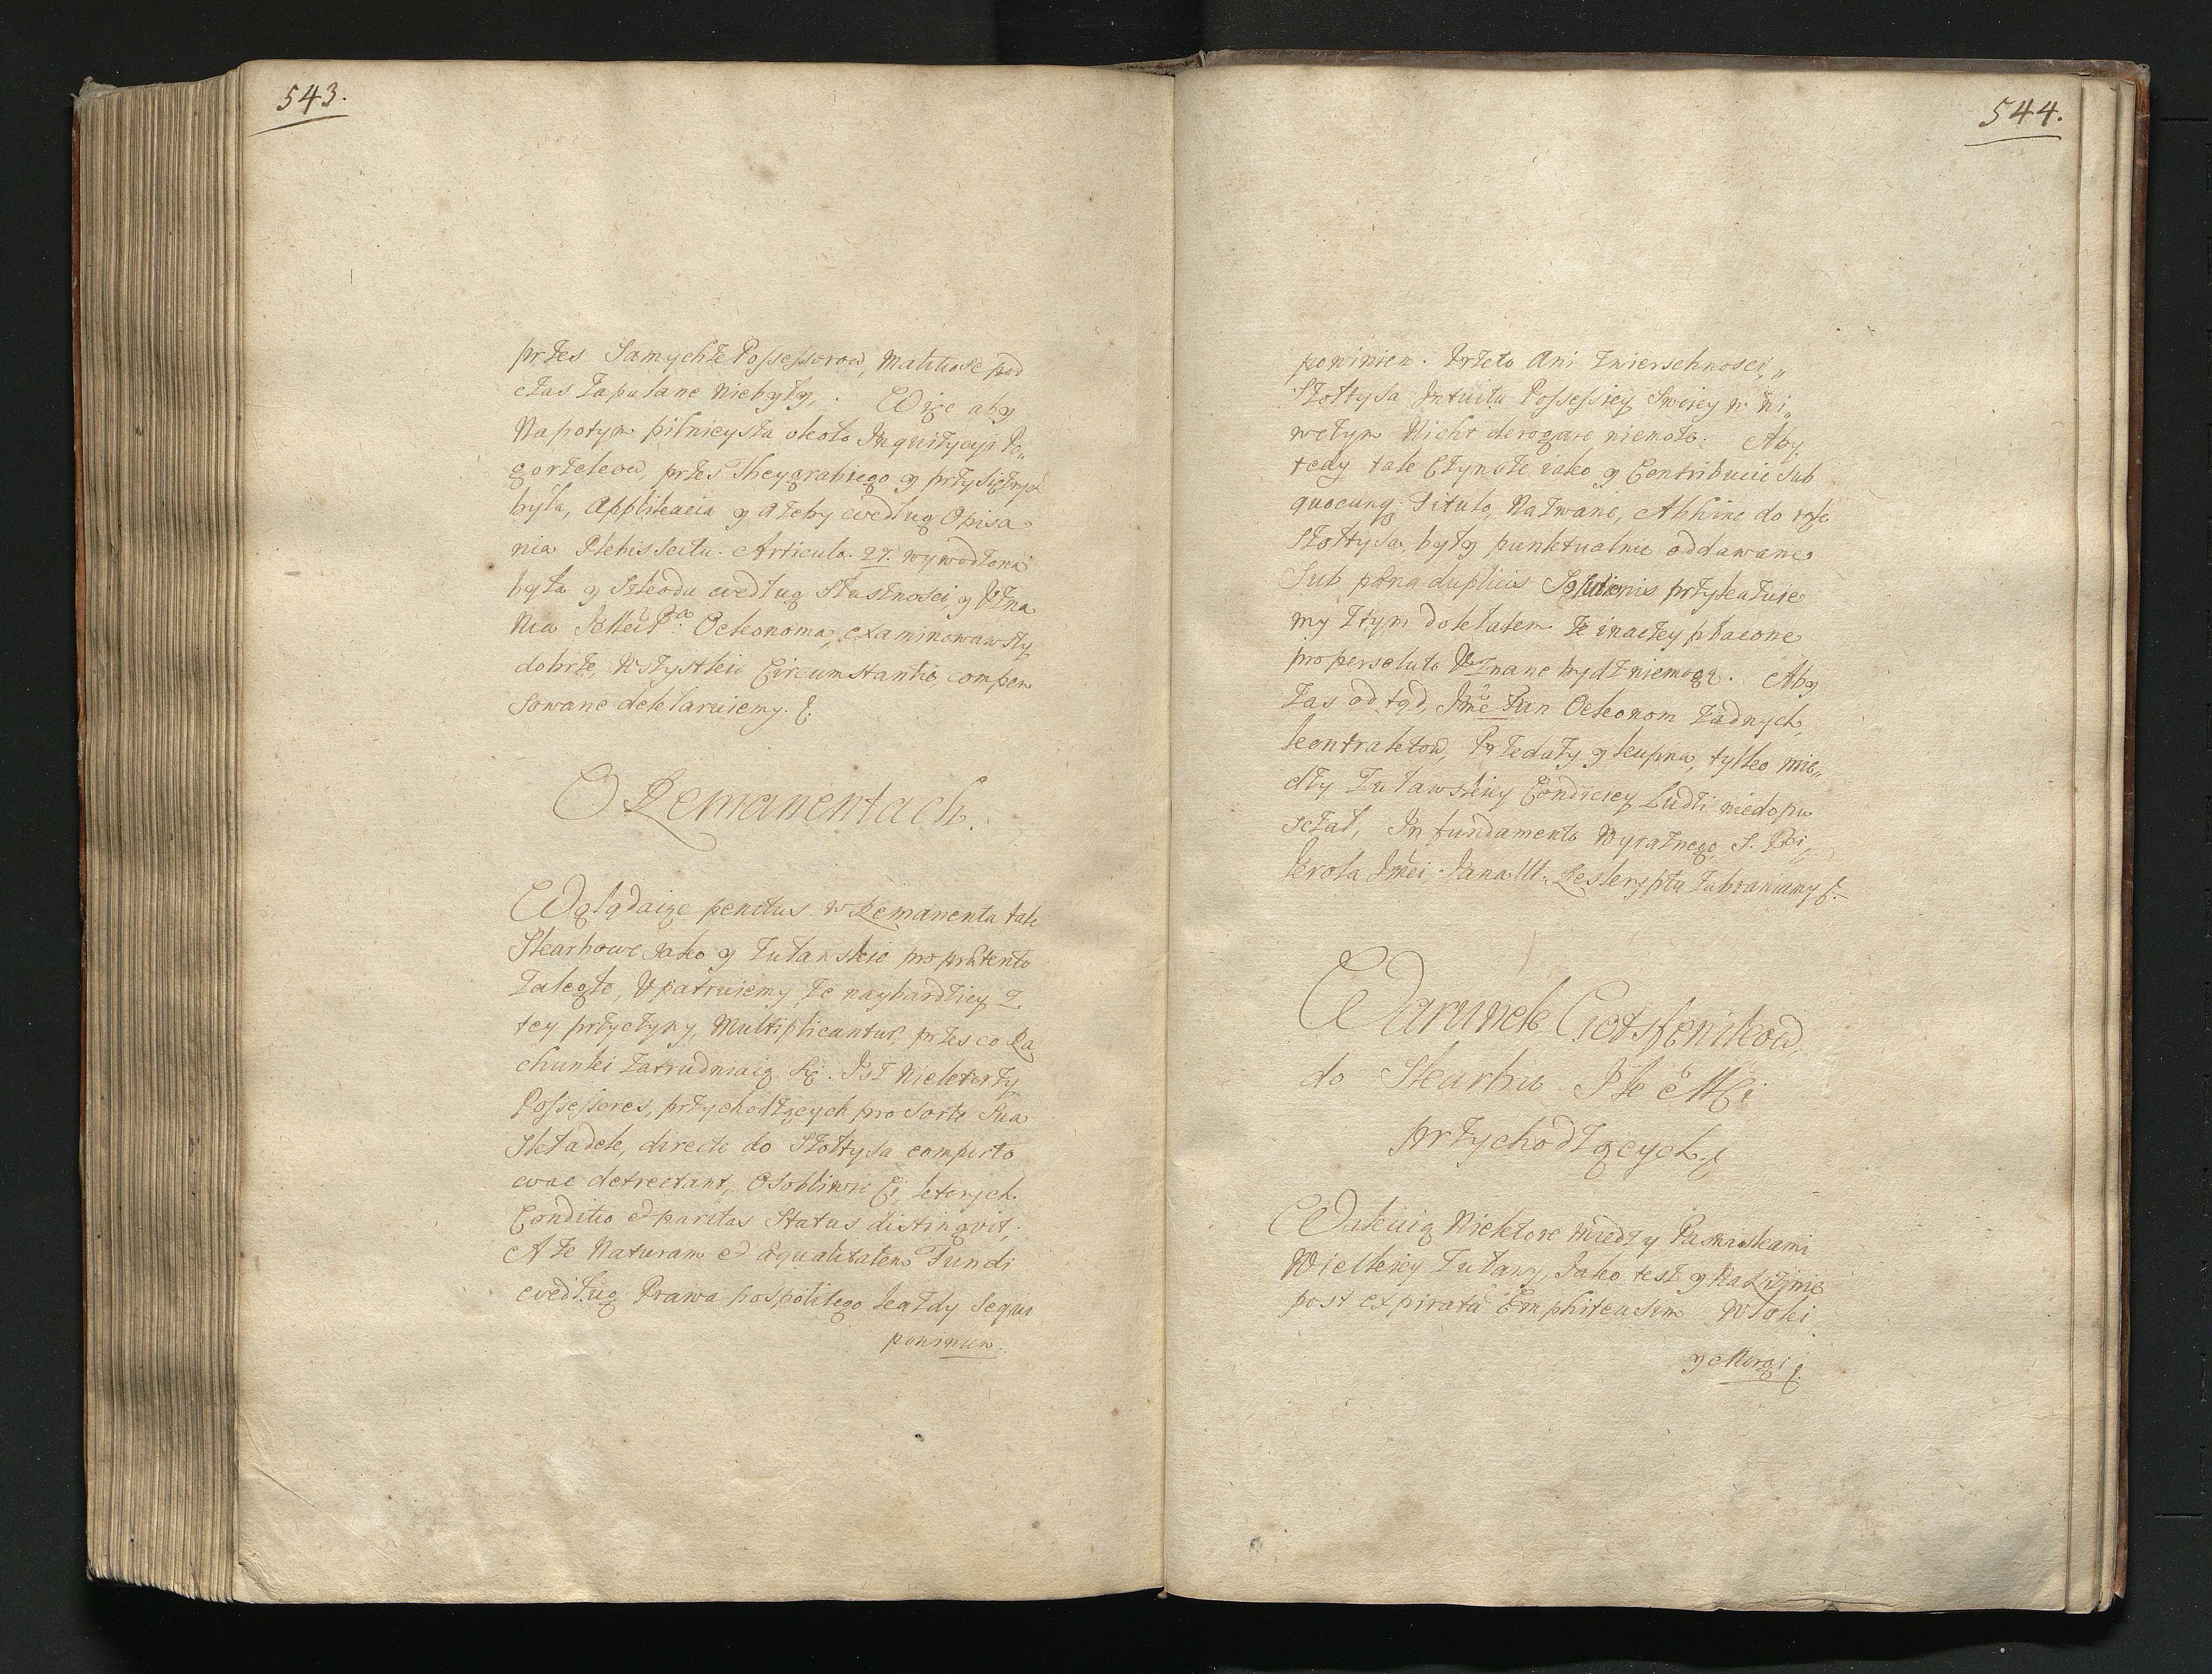 543.
przes Samychże Possessorow, Malitiose pod
czas zapalane Niebyły, . Więc aby
Napotym pilnieysza około Inquizycyi Po„
gorzelcow, przes Theygrabiego y przysiężnych
była, Applikacia y ażeby według Opisa„
nia Plebisscitu. Articulo. 27. wywodzona
była y Szkoda według Słuszności, y Uzna
Nia Oekonoma, examinowawszy
dobrze, Wszystkie Circumstantie, compen
sowane deklaruiemy.
O Remanentach.
Wglądaiąc penitus w Remanenta tak
Skarbowe iako y Żuławskie pro prætento
Zaległe, Upatruiemy że naybardziey z
tey przyczyny, Multiplicantur, przes co Ra
chunki zatrudniaią się. Isz Niektorzy
Possessores, przychodzących pro Sorte Sua
Składek, directe do Szołtysa comporto
wac detrectant, Osobliwie Ci, ktorych.
Conditio et paritas Status distingvit,
A że Naturam et æqualitatem Fundi
według Prawa pospolitego każdy Sequi
powinien.
544.
powinien. Przeto Ani Zwierschnosci„
Szołtysa Intuitu Possessiey Swoiey w Ni„
wczym Nicht derogare niemoże. Aby
tedy tak Czynsze iako y Contribucie Sub
quocunq Titulo, Nazwane, Abhinc do rąk
Szołtysa, były punktualnie oddawane
Sub pæna duplicis Solutionis przykazuie
my z tym dokładem że inaczey płacone
pro persoluto Uznane bydz niemogą. Aby
zas od tąd, Jme Pan Oekonom Żadnych,
kontraktow, Przedaży y kupna, tylko mie„
dzy Żuławskiey Condiciey Ludzi niedopu
sczał, In fundamento Wyraznego S. P.
Krola Jmci Jana III. Reskryptu zabraniamy
Warunek Czotsfenikow
do Skarbu JKMCi
przychodzących
Wakuią Niektore między Pastwiskami
Wielkiey Żuławy, Jako test y Na
post expiratā Emphiteusim Włoki
y Morgi